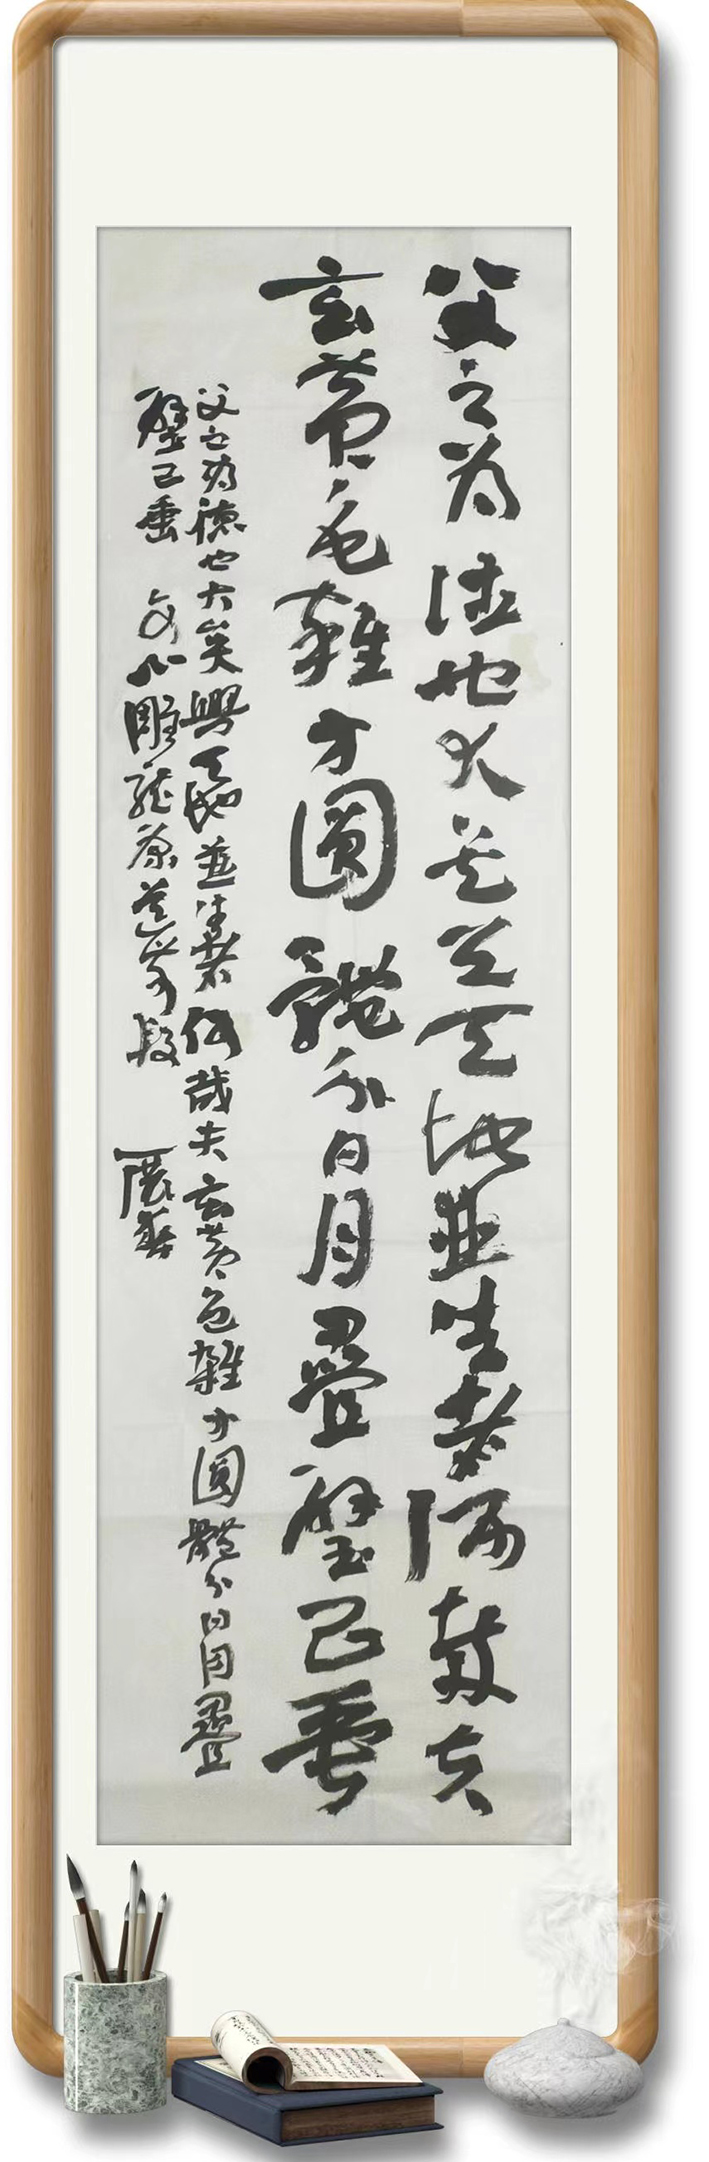 父之为德也大矣与天地並生者何哉夫
玄黄色雜方圓體分日月疊璧已垂
父之为德也大矣與天地並生者何哉夫玄黄色雜方圓體分日月疊
璧已垂 文心雕龍原道首段